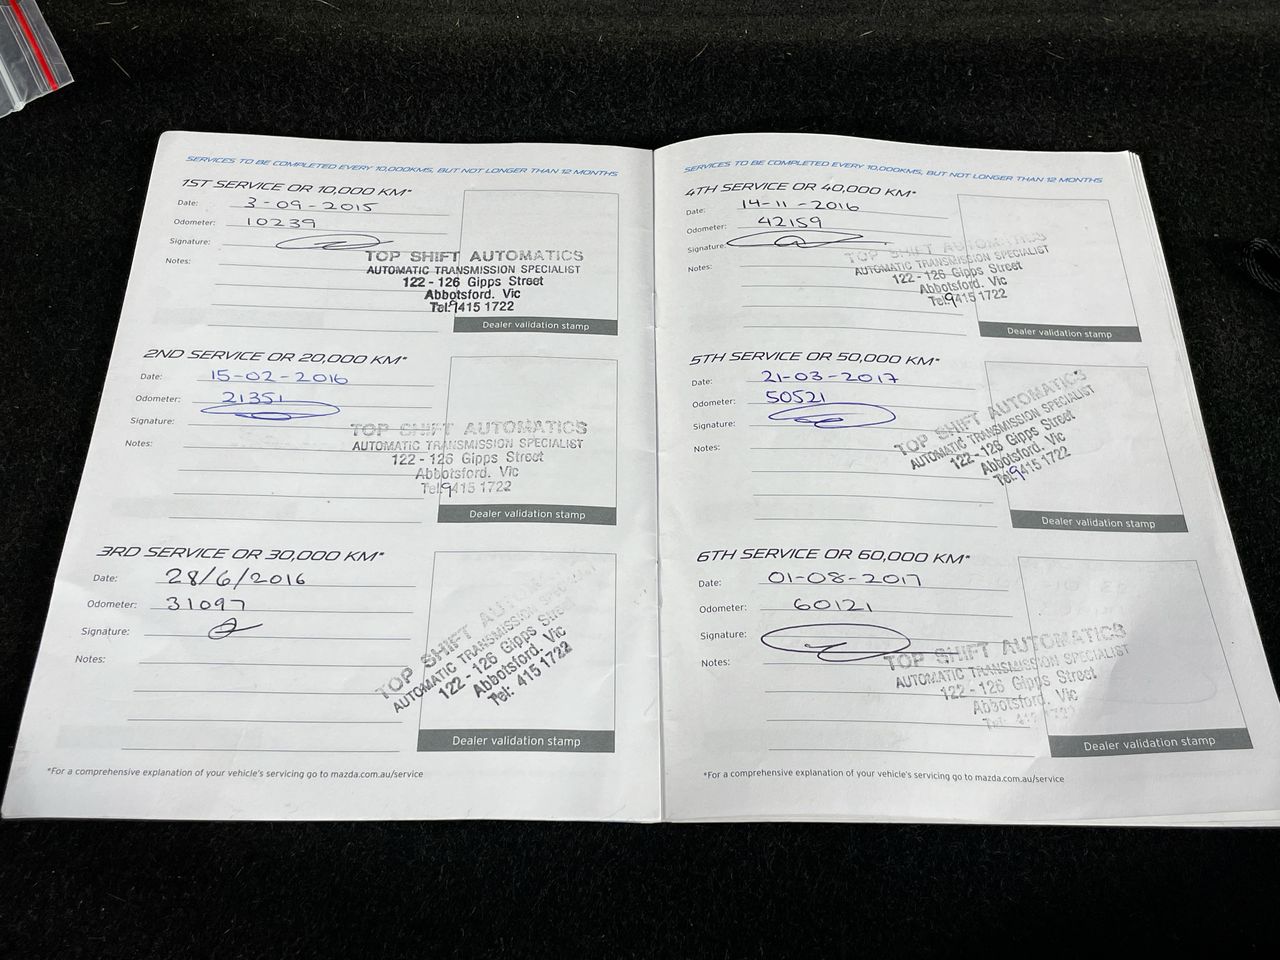 SERVICES TO BE COMPLETED EVERY 10,000KMS, BUT NOT LONGER THAN 12 MONTHS
1ST SERVICE OR 10,000 KM*
Date: 3-09-2015
Odometer: 10239
Signature:
Notes:
TOP SHIFT AUTOMATICS
AUTOMATIC TRANSMISSION SPECIALIST
122 - 126 Gipps Street
Abbotsford. Vic
Tel:9415 1722
Dealer validation stamp
2ND SERVICE OR 20,000 KM*
Date: 15-02-2016
Odometer: 21351
Signature:
Notes:
TOP SHIFT AUTOMATICS
AUTOMATIC TRANSMISSION SPECIALIST
122 - 126 Gipps Street
Abbotsford. Vic
Tel:9415 1722
Dealer validation stamp
3RD SERVICE OR 30,000 KM*
Date: 28/6/2016
Odometer: 31097
Signature:
Notes:
TOP SHIFT AUTOMATICS
AUTOMATIC TRANSMISSION SPECIALIST
122 - 126 Gipps Street
Abbotsford. Vic
Tel: 415 1722
Dealer validation stamp
*For a comprehensive explanation of your vehicle's servicing go to mazda.com.au/service
SERVICES TO BE COMPLETED EVERY 10,000KMS, BUT NOT LONGER THAN 12 MONTHS
4TH SERVICE OR 40,000 KM*
Date: 14-11-2016
Odometer: 42159
Signature:
Notes:
TOP SHIFT AUTOMATICS
AUTOMATIC TRANSMISSION SPECIALIST
122 - 126 Gipps Street
Abbotsford. Vic
Tel:9415 1722
Dealer validation stamp
5TH SERVICE OR 50,000 KM*
Date: 21-03-2017
Odometer: 50521
Signature:
Notes:
TOP SHIFT AUTOMATICS
AUTOMATIC TRANSMISSION SPECIALIST
122 - 126 Gipps Street
Abbotsford. Vic
Tel:9415 1722
Dealer validation stamp
6TH SERVICE OR 60,000 KM*
Date: 01-08-2017
Odometer: 60121
Signature:
Notes:
TOP SHIFT AUTOMATICS
AUTOMATIC TRANSMISSION SPECIALIST
122 - 126 Gipps Street
Abbotsford. Vic
Tel:
Dealer validation stamp
*For a comprehensive explanation of your vehicle's servicing go to mazda.com.au/service